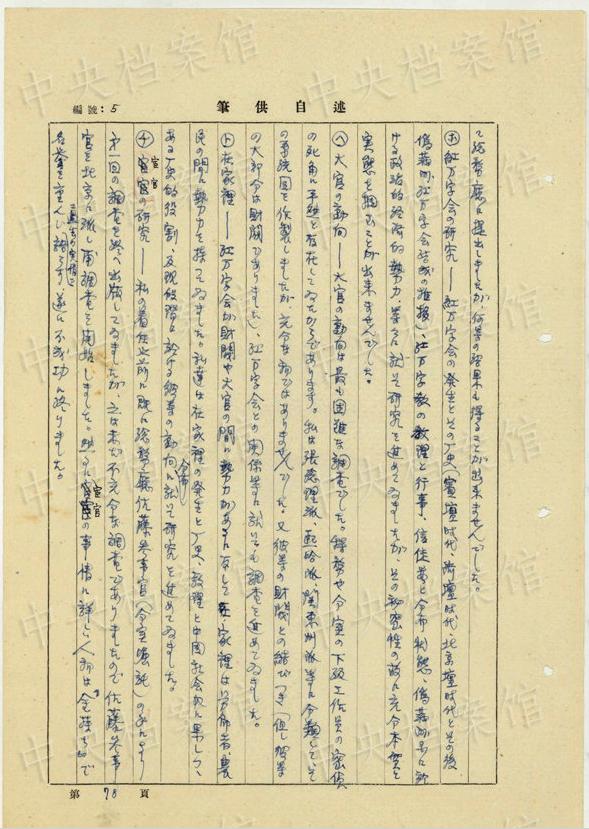 編號：5
述自供筆
て総務廳に提出しましたが、何等の結果も得ることが出来ませんでした。
(ホ)紅万字会の研究——紅万字会の発生とその歴史(濱壇時代、済壇時代、北京壇時代とその後
偽満州紅万字会結成の推移)、紅万字教の教理と行事、信徒等と分布状態、偽満州国に於
ける政治的経済的勢力、等々に就て研究を進めてゐましたが、その秘密性の故に充分本質と
実態を掴むことが出来ませんでした。
(ヘ)大官の動向——大官の動向は最も困難な調査でした。
の死角に平然と存在してゐたからであります。私は張景恵派、熙洽派、関東州派等に分類して、そ
の系統図を作製しましたが充分なものではありませんでした。又彼等の財閥との結びつき(但し彼等
の大部分は財閥でありました)、紅万字会との関係等に就いても調査を進めてゐました。
(ト)在家裡——紅万字会が財閥や大官の間に勢力があるに反して在家裡は労働者、農
民の間に勢力を持ってゐました。私達は在家裡の発生と歴史、教理と中国社会史に果しつゝ
ある歴史的役割、及現段階に於ける彼等の動向、分布に就て研究を進めてゐました。
(チ)宦官の研究——私の着任以前に既に総務廳佐藤参事官(
第一回の調査を終へ出版してゐましたが、之は未だ不充分な調査でありましたので佐藤参事
官を北京に派し再調査を開始しました。然るに宦官の事情に詳しい人物は
名誉を重んじ過去の実情を語らず、遂に不成功に終りました。
第 78 頁
中央档案馆